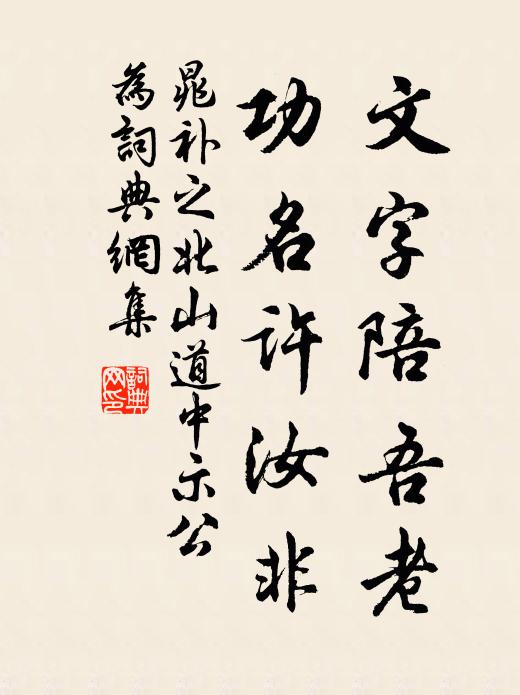 文字陪吾老
功名許汝非
晁补之北山道中示公
為詞典網集
詞典網印